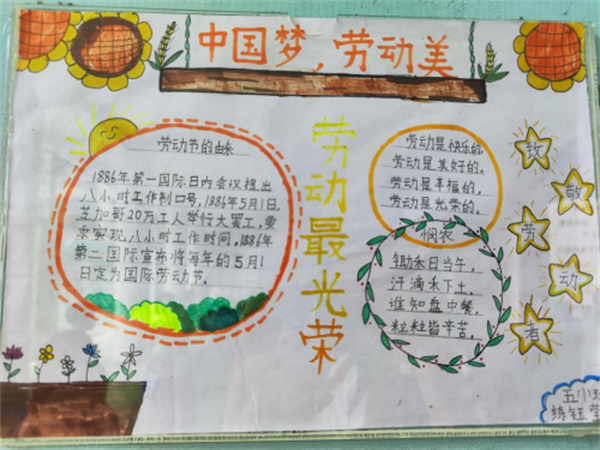 中国梦，劳动美
劳动节的由来
1886年第一国际日内会议提出
八小时工作制口号，1886年5月1日，
芝加哥20万工人举行大罢工，要
求实现八小时工作时间，1886年
第二国际宣布将每年的5月1
日定为国际劳动节。
劳动最光荣
劳动是快乐的，
劳动是美好的。
劳动是幸福的，
劳动是光荣的。
悯农
锄禾日当午，
汗滴禾下土。
谁知盘中餐，
粒粒皆辛苦。
致敬劳动者